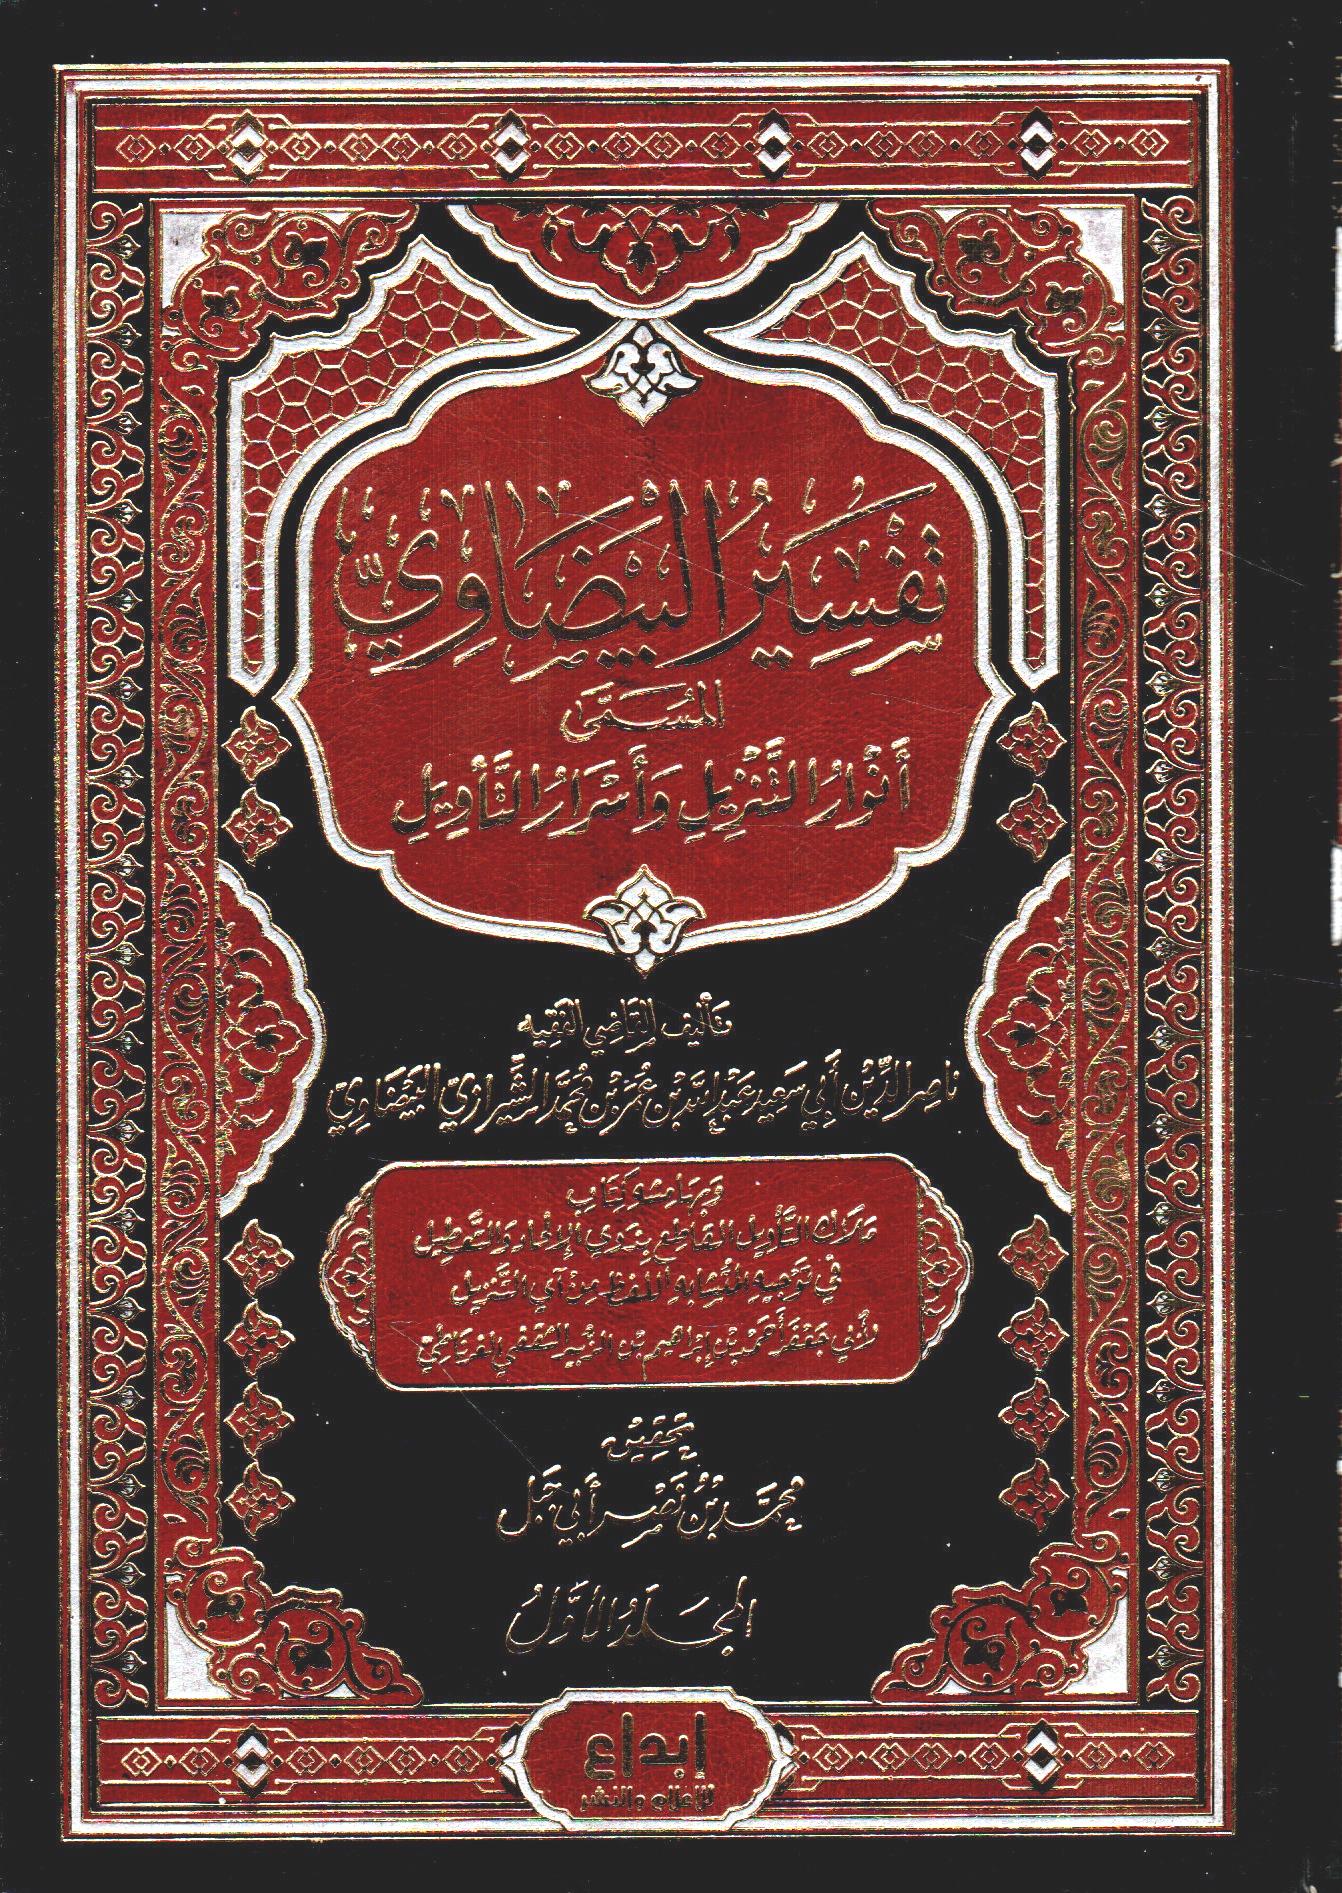 تَفْسِيرُ الْبَيْضَاوِيِّ
المُسَمَّى
أَنْوَارُ التَّنْزِيلِ وَأَسْرَارُ التَّأْوِيلِ
تأليف القاضي الفقيه
ناصر الدِّين أبي سعيد عبد الله بن عمر بن محمد الشِّيرازيّ البيضاويّ
وبهامشه كتاب
ملاك التأويل القاطع بذوي الإلحاد والتعطيل
في توجيه المتشابه اللفظ من آي التنزيل
لأبي جعفر أحمد بن إبراهيم بن الزبير الثقفي الغرناطي
تحقيق
محمد بن نصر أبي جبل
المجلد الأول
إبداع
للإعلام والنشر